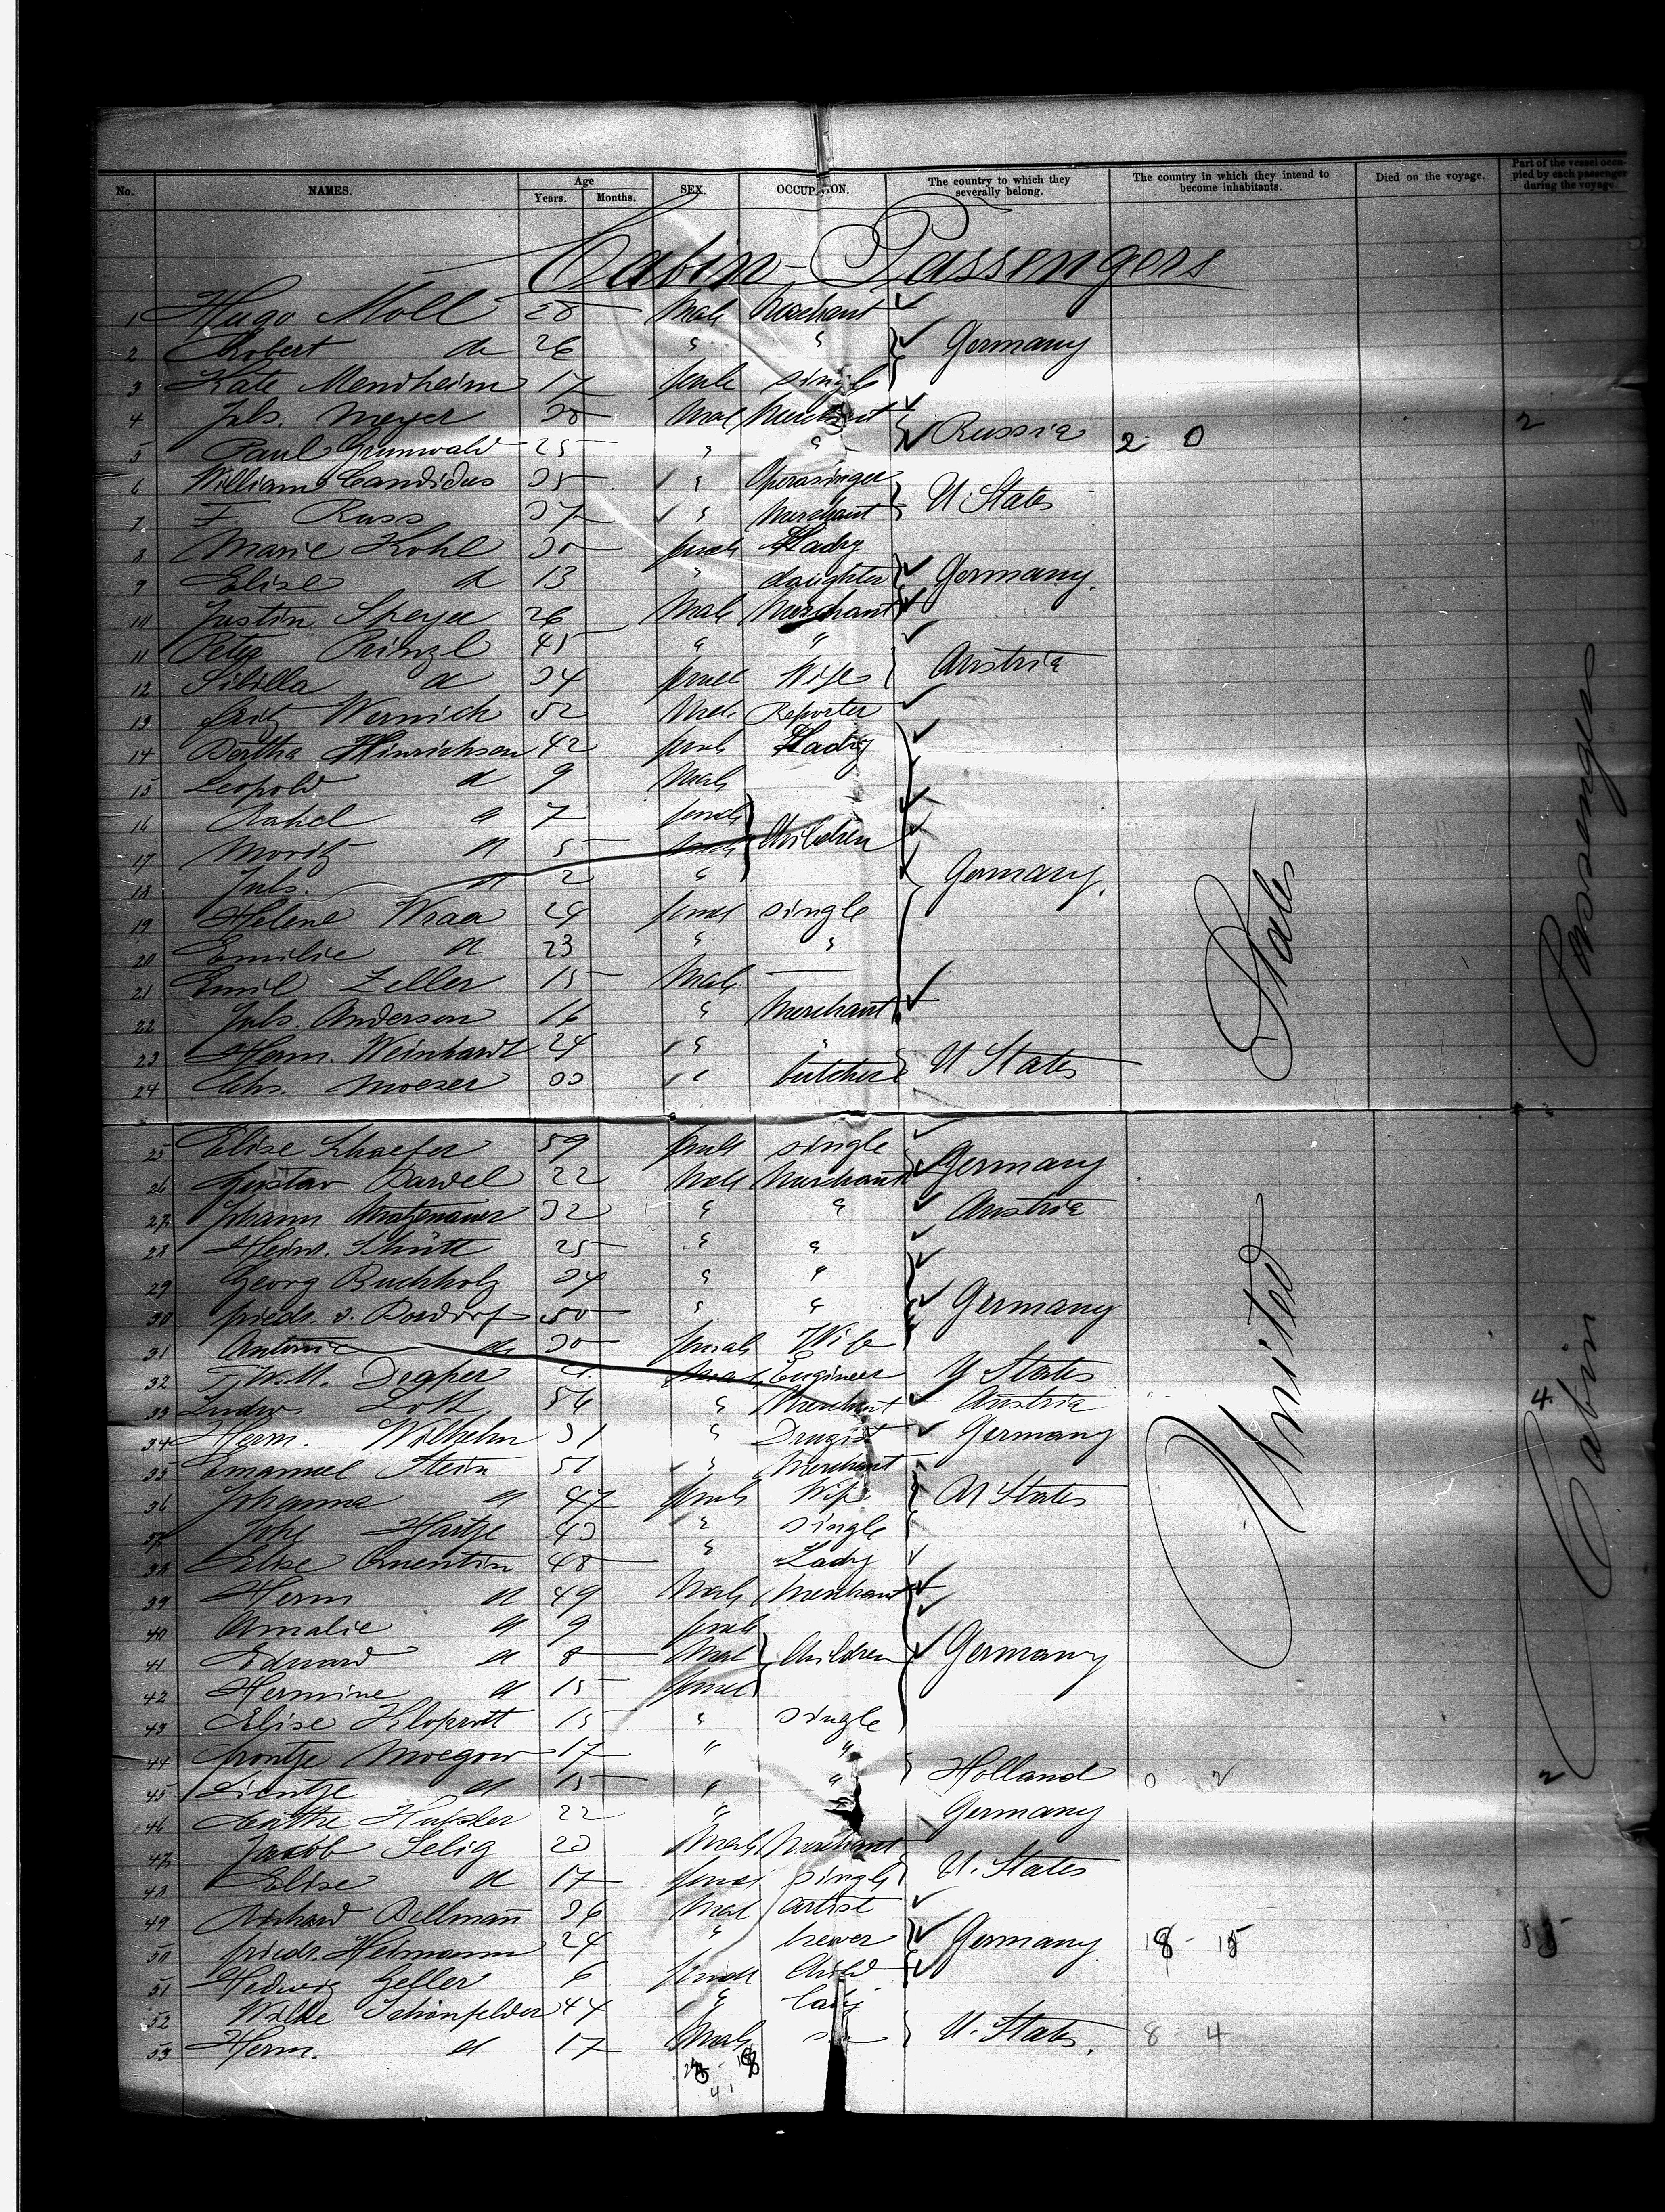 No. NAMES. Age Years. Months. SEX. OCCUPATION. The country to which they severally belong. The country in which they intend to become inhabitants. Died on the voyage. Part of the vessel occupied by each passenger during the voyage.
Cabin-Passengers
1 Hugo Moll 28 Male Merchant
2 Robert do 26 " " Germany
3 Kate Mendheim 17 single
4 Juls. Meyer Merchant
5 Paul Grunwald 25 " " Russia 2 0 2
6 William Candidus 35 " Operasinger
7 F. Russ 37 " Merchant U. States
8 Marie Kohl 30 Lady
9 Elise d 13 " daughter Germany.
10 Justin Speyer 26 Male Merchant
11 Peter Prinzl 45 " "
12 Sibilla d 34 Wife Austria
13 Fritz Wernich 52 Male Reporter
14 Bertha Hinrichsen 42 Lady
15 Leopold d 9 Male
16 Rahel d 7
17 Moritz d 5 Children
18 Juls. d 2 " Germany.
19 Helene Wraa 24 single
20 Emilie d 23 " "
21 Emil Zeller 15 Male —
22 Juls. Anderson 16 " Merchant
23 Herm. Weinhardt 24 " "
24 Chs. Moeser 33 " butcher U States
25 Elise Schaefer 59 single
26 Gustav Bardel 22 Male Merchant Germany
27 Johann 32 " " Austria
28 Heinr. Schütt 25 " "
29 Georg Buchholz 34 " "
30 Friedr. v. 50 " " Germany
31 Antonie do 30 Female Wife
32 Draper Engineer U States
33 Ludw. 54 " Merchant Austria
34 Herm. Wilhelm 31 " Drugist Germany
35 Emanuel Stein 51 " Merchant
36 Johanna d 47 Wife U States
37 43 " single
38 Elise Quentin 48 " Lady
39 Herm d 49 Male Merchant
40 Amalie d 9
41 Eduard d 8 Male Children Germany
42 Hermine d 15
43 Elise 15 " single
44 17 " "
45 d 15 " " Holland 0 2 2
46 22 " Germany
47 Jacob Selig 23 Male Merchant
48 Elise d 17 single U. States
49 Richard Bellmann 36 Male Artist
50 Friedr. Heimann 24 " brewer Germany 18 - 15
51 Hedwig Geller 6 Child
52 Schönfelder 44 " lady
53 Herm. d 17 Male U. States. 8 - 4
41
United States
Cabin Passengers
4